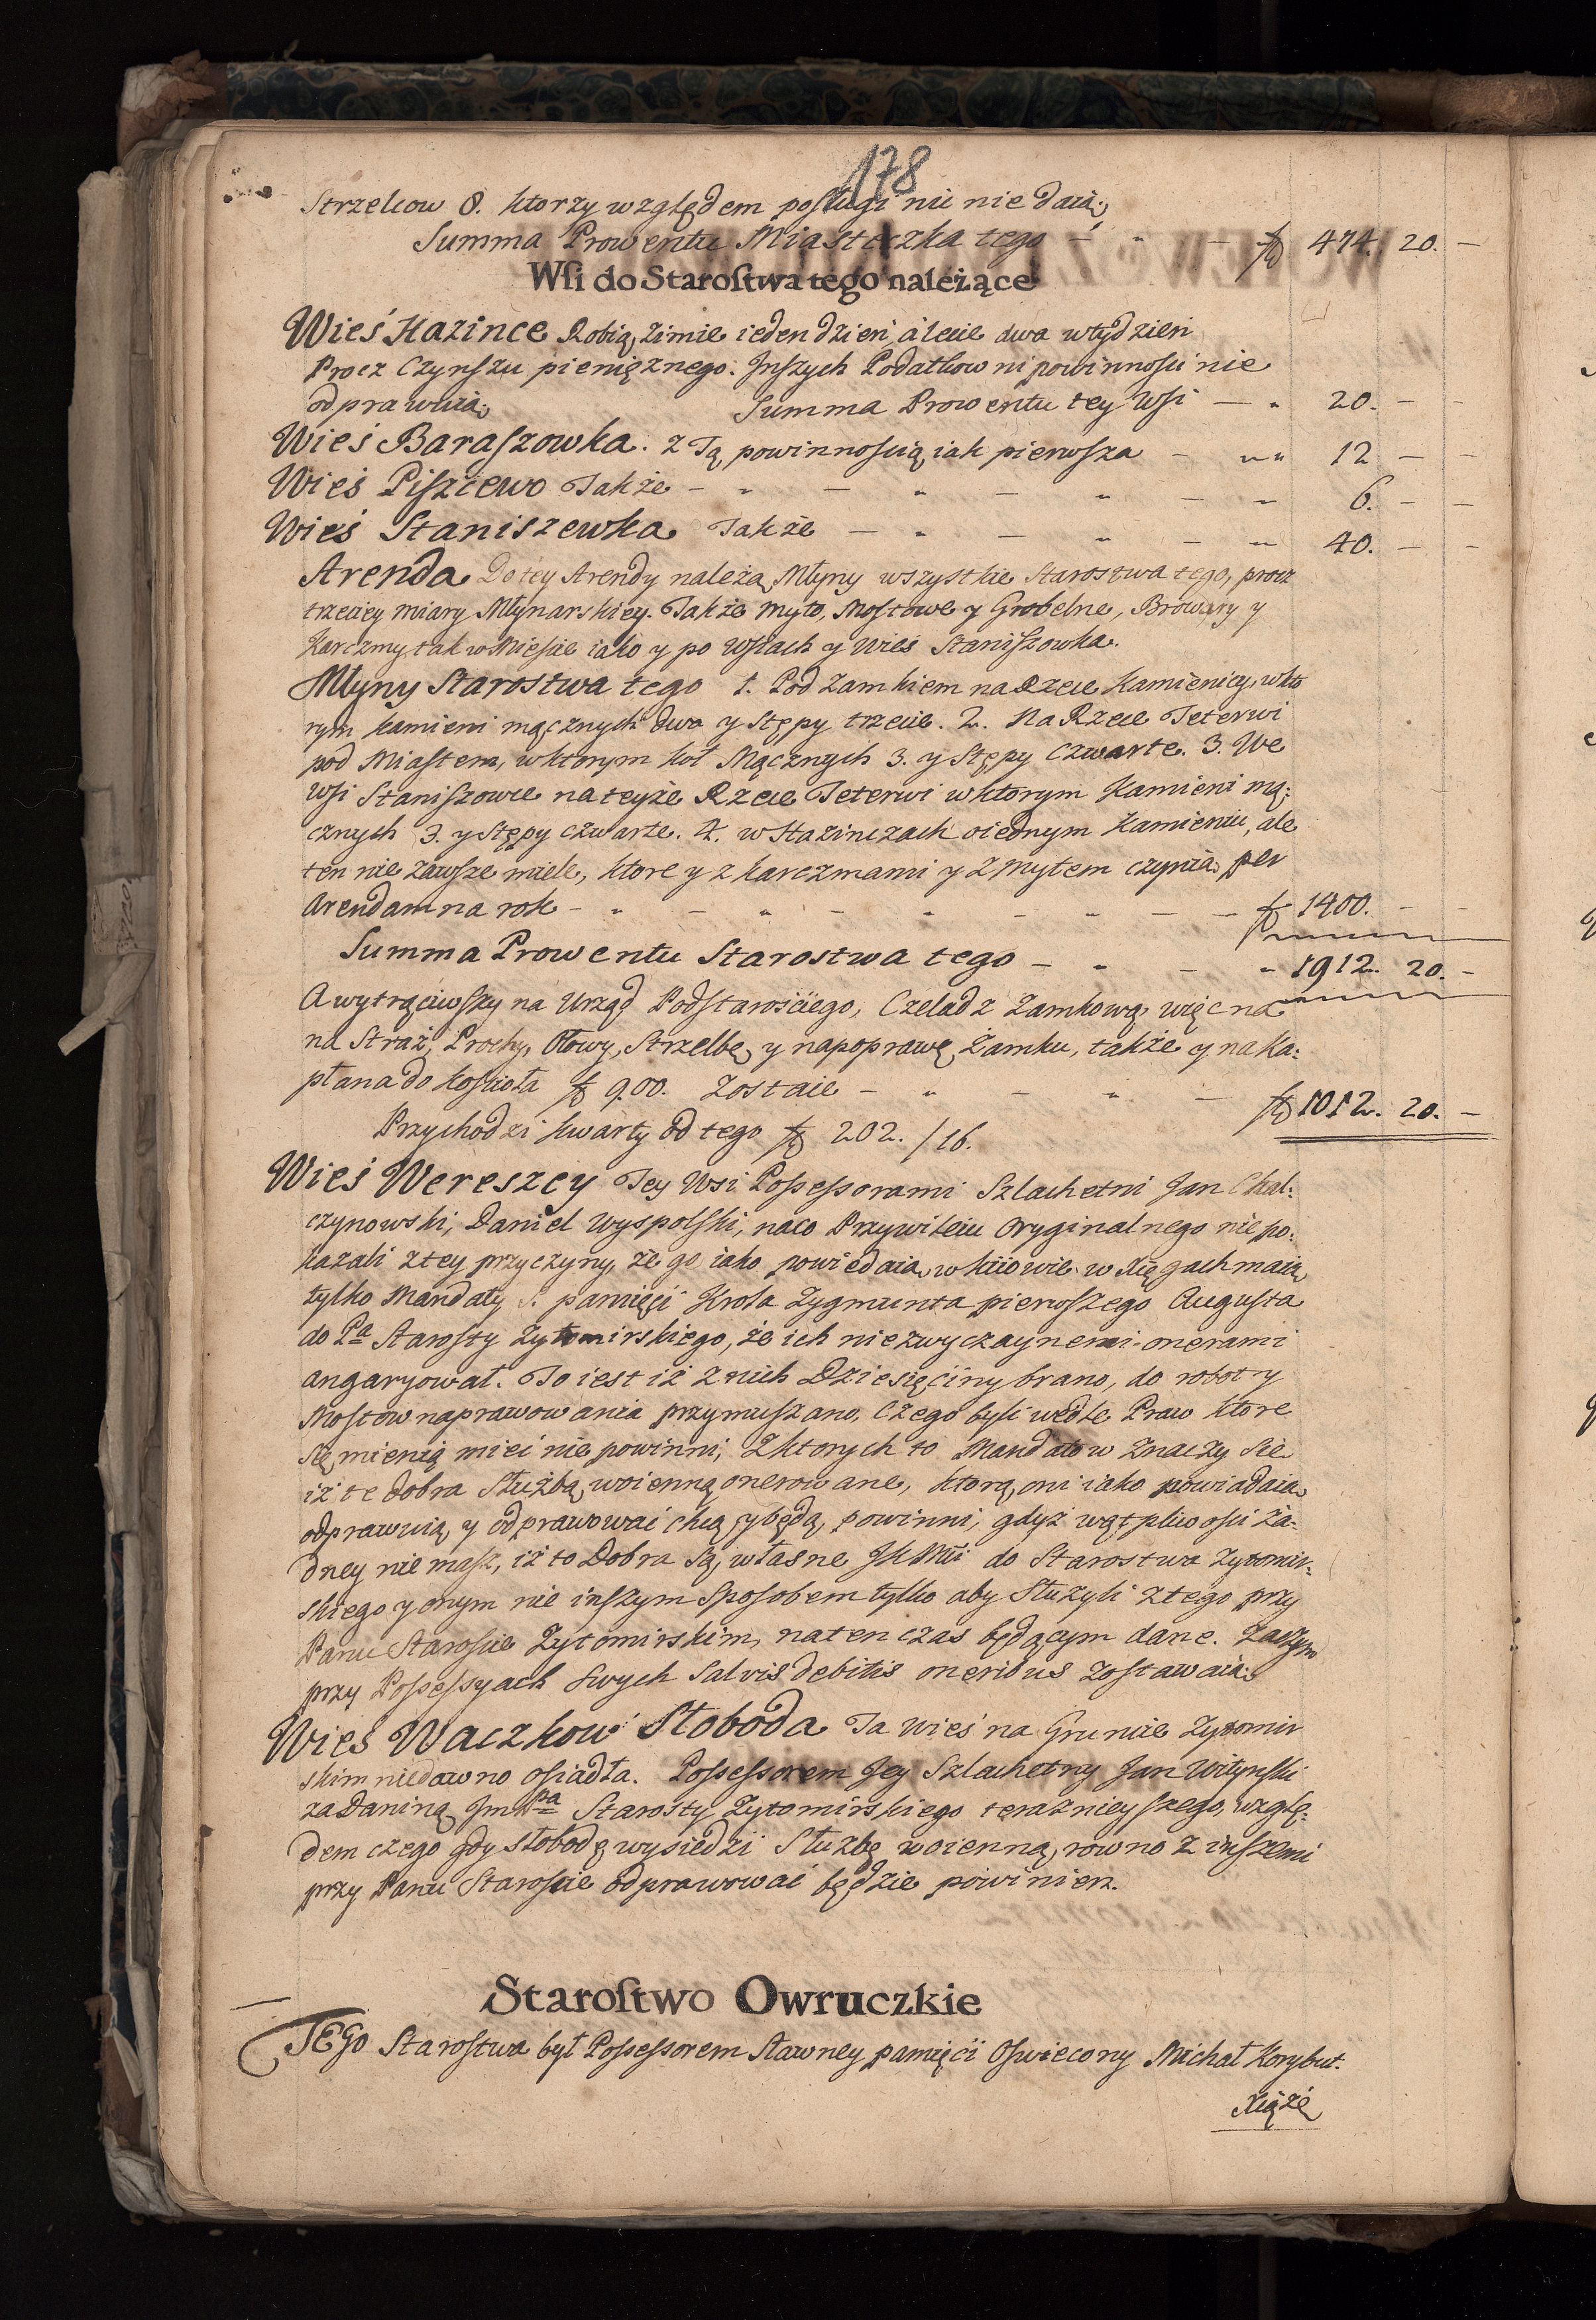 178
Strzelcow 8. ktorzy względem posługi nic nie daią,
Summa Prowentu Miasteczka tego — " — fł 474. 20. —
Wſi do Staroſtwa tego należące
Wieś Kazince Robią, zimie ieden dzień, á lecie dwa w tydzień
Procz Czynszu pieniężnego. Inszych Podatkow ni powinnosci nie
odprawuią. Summa Prowentu tey Wsi — " 20. — —
Wieś Baraszowka. z Tą powinnoscią iak pierwsza — " " 12 — —
Wieś Piszczewo Także — " — " — " — " 6. — —
Wieś Staniszewka Także — " — " — " 40. — —
Arenda Do tey Arendy należą Młyny wszystkie Starostwa tego, procz
trzeciey miary Młynarskiey. Także myto, Mostowe y Grobelne, Browary y
Karczmy tak w Miescie iako y po Wsiach y Wieś Staniszowka.
Młyny Starostwa tego 1. Pod Zamkiem na Rzece Kamienicy, w kto
rym kamieni mącznych dwa y Stępy trzecie. 2. Na Rzece Teterwi
pod Miastem, w ktorym Koł Mącznych 3. y Stępy Czwarte. 3. We
Wsi Staniszowce na teyże Rzece Teterwi w ktorym Kamieni mą:
cznych 3. y Stępy czwarte. 4. w Kazinczach o iednym Kamieniu, ale
ten nie zawsze miele, ktore y z karczmami y z Mytem czynią per
Arendam na rok — " — " — " — " — — fł 1400. — —
Summa Prowentu Starostwa tego — " — " 1912. 20. —
A wytrąciwszy na Urząd Podstarosciego, Czeladz Zamkową, więc na
na Straż, Prochy, Ołowy, Strzelbę, y na poprawę Zamku, także y na Ka:
płana do Koscioła fł 900. Zostaie — " — " — fł 1012. 20. —
Przychodzi kwarty od tego fł 202. / 16.
Wieś Wereszcy Tey Wsi Possessorami Szlachetni Jan Chal:
czynowski, Daniel Wyspolski, na co Przywileiu Oryginalnego nie po:
kazali z tey przyczyny, że go iako powiedaią, w Kiiowie w Xięgach maią,
tylko Mandaty S. pamięci Krola Zygmunta pierwszego Augusta
do Pa Starosty Zytomirskiego, że ich niezwyczaynemi onerami
angaryował. To iest iż z nich Dziesięciny brano, do roboty
Mostow naprawowania przymuszano, Czego byli wedle Praw ktore
się mienią mieć nie powinni, Z ktorych to Mandatow znaczy się
iż te dobra Służbą, woienną onerowane, ktorą, oni iako powiadaią
odprawuią, y odprawować chcą y będą, powinni, gdyż wątpliwosci ża:
dney nie masz, iż to Dobra są własne JKMci do Starostwa Zytomir:
skiego y onym nie inszym Sposobem tylko aby Służyli z tego przy
Panu Staroscie Zytomirskim, na ten czas będącym dane. Zaczym
przy Possessyach swych Salvis debitis oneribus zostawaią.
Wieś Waczkow Słoboda Ta wieś na Gruncie Zytomir
skim niedawno osiadła. Possessorem Jey Szlachetny Jan Wityński
za Daniną Jmć Pa Starosty Zytomirskiego teraznieyszego, wzglę:
dem czego gdy słobodę wysiedzi Służbę woienną, rowno z inszemi
przy Panu Staroscie odprawować będzie powinien.
Staroſtwo Owruczkie
TEGo Starostwa był Possessorem sławney pamięci Oswiecony Michał Korybut.
Xiąże